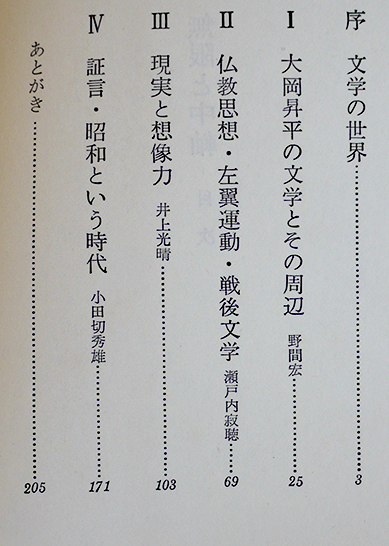 序 文学の世界……………3
Ⅰ 大岡昇平の文学とその周辺 野間宏……………25
Ⅱ 仏教思想・左翼運動・戦後文学 瀬戸内寂聴……………69
Ⅲ 現実と想像力 井上光晴……………103
Ⅳ 証言・昭和という時代 小田切秀雄……………171
あとがき……………205